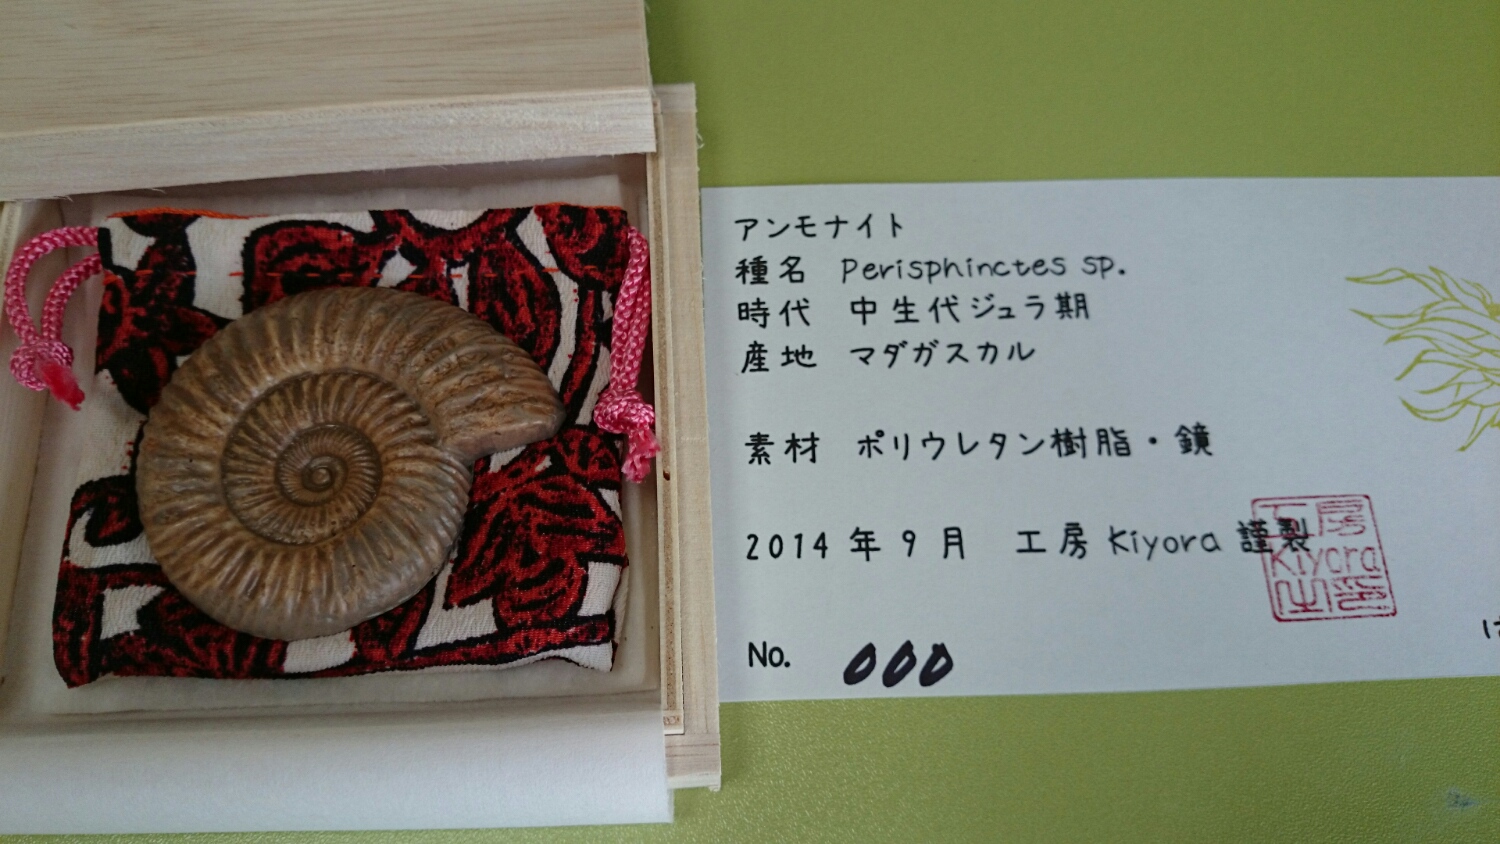 アンモナイト
種名 Perisphinctes sp.
時代 中生代ジュラ期
産地 マダガスカル
素材 ポリウレタン樹脂・鏡
2014年9月 工房Kiyora 謹製
工房
Kiyora
之印
No. 000
は